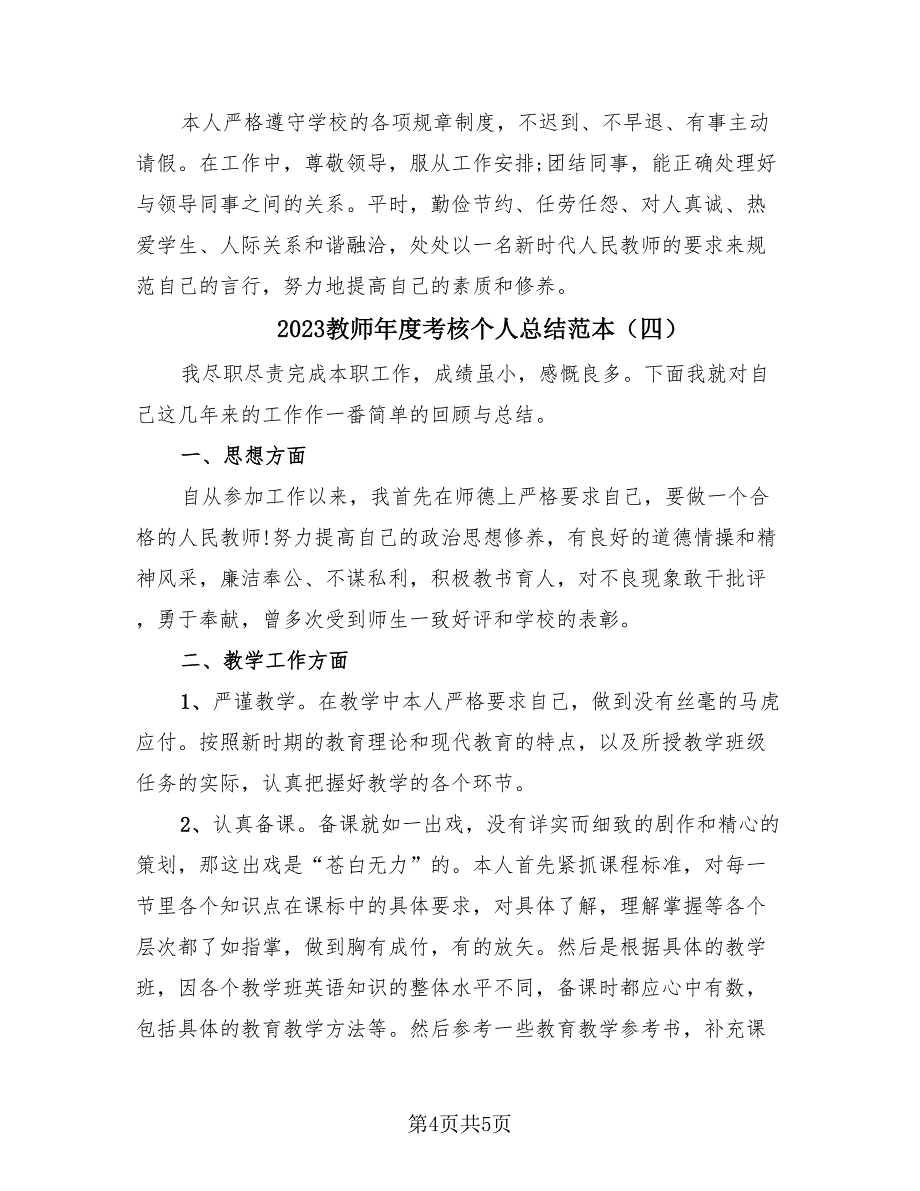 本人严格遵守学校的各项规章制度，不迟到、不早退、有事主动
请假。在工作中，尊敬领导，服从工作安排;团结同事，能正确处理好
与领导同事之间的关系。平时，勤俭节约、任劳任怨、对人真诚、热
爱学生、人际关系和谐融洽，处处以一名新时代人民教师的要求来规
范自己的言行，努力地提高自己的素质和修养。
2023教师年度考核个人总结范本（四）
我尽职尽责完成本职工作，成绩虽小，感慨良多。下面我就对自
己这几年来的工作作一番简单的回顾与总结。
一、思想方面
自从参加工作以来，我首先在师德上严格要求自己，要做一个合
格的人民教师!努力提高自己的政治思想修养，有良好的道德情操和精
神风采，廉洁奉公、不谋私利，积极教书育人，对不良现象敢干批评
，勇于奉献，曾多次受到师生一致好评和学校的表彰。
二、教学工作方面
1、严谨教学。在教学中本人严格要求自己，做到没有丝毫的马虎
应付。按照新时期的教育理论和现代教育的特点，以及所授教学班级
任务的实际，认真把握好教学的各个环节。
2、认真备课。备课就如一出戏，没有详实而细致的剧作和精心的
策划，那这出戏是“苍白无力”的。本人首先紧抓课程标准，对每一
节里各个知识点在课标中的具体要求，对具体了解，理解掌握等各个
层次都了如指掌，做到胸有成竹，有的放矢。然后是根据具体的教学
班，因各个教学班英语知识的整体水平不同，备课时都应心中有数，
包括具体的教育教学方法等。然后参考一些教育教学参考书，补充课
第4页共5页